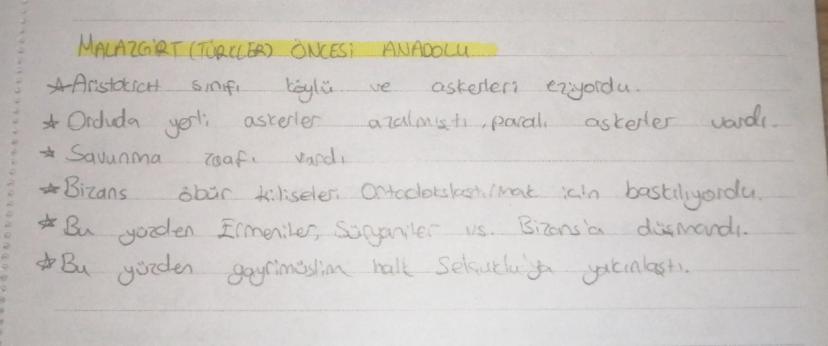 MALAZGİRT (TÜRKLER) ÖNCESİ ANADOLU
★ Aristokrat sınıfı köylü ve askerleri eziyordu.
★ Orduda yerli askerler azalmıştı, paralı askerler vardı.
★ Savunma zaafı vardı
★ Bizans öbür kiliseleri Ortodokslaştırmak için baskılıyordu.
★ Bu yüzden Ermeniler, Süryaniler vs. Bizans'a düşmandı.
★ Bu yüzden gayrimüslim halk Selçuklu'ya yakınlaştı.